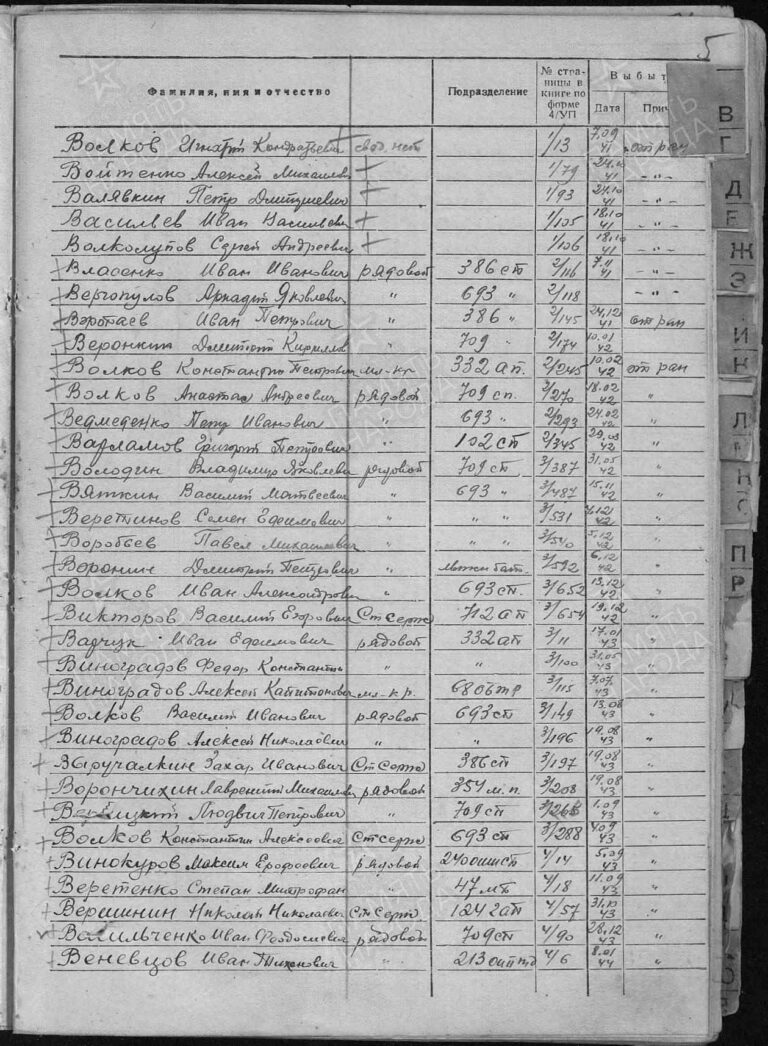 5
Фамилия, имя и отчество Подразделение № страницы в книге по форме 4/УП Выбыт
Дата Прич
Волков Игнатий Кондратьевич 1/13 7.09 41 от ран
Войтенко Алексей Михайлов 1/79 24.10 41 - " -
Валявкин Петр Дмитриевич 1/93 24.10 41 - " -
Васильев Иван Васильевич 1/105 18.10 41 - " -
Волколупов Сергей Андреевич 1/106 18.10 41 - " -
Власенко Иван Иванович рядовой 386 сп 2/116 7.11 41 - " -
Вергопулов Аркадий Яковлевич " 693 " 2/118 - " -
Иван Петрович " 386 " 2/145 24.12 41 от ран
Веронкин Дмитрий Кириллов " 709 " 2/174 10.01 42
Волков Константин Петрович мл-кр. 332 ап. 2/245 10.02 42 от ран
Волков Анастас Андреевич рядовой 709 сп. 3/270 18.02 42 "
Ведмеденко Петр Иванович " 693 " 2/293 24.02 42 "
Варламов Григорий Петрович " 102 сп 2/345 29.03 42 "
Володин Владимир Яковлевич рядовой 709 сп 3/387 31.05 42 "
Вяткин Василий Матвеевич " 693 " 3/487 15.11 42 "
Веретинов Семен Ефимович " " " 3/531 12 42 "
Воробьев Павел Михайлович " 3/540 5.12 42 "
Воронин Дмитрий Петрович " 3/592 6.12 42 "
Волков Иван Александрович " 693 сп. 3/652 13.12 42 "
Викторов Василий Егорович Ст серж 712 ап 3/654 19.12 42 "
Вадчук Иван Ефимович рядовой 332 ап 3/11 17.01 43 "
Виноградов Федор Константин " " 3/100 31.05 43 "
Виноградов Алексей Капитонович мл-кр. 68 3/115 7.07 43 "
Волков Василий Иванович рядовой 693 сп 3/149 13.08 43 "
Виноградов Алексей Николаевич " " 3/196 19.08 43 "
Выручалкин Захар Иванович Ст серж 386 сп 3/197 19.08 43 "
Ворончихин Лаврентий Михайлович рядовой 354 м.п. 3/208 19.08 43 "
Людвич Петрович " 709 сп 3/268 1.09 43 "
Волков Константин Алексеевич Ст серж 693 сп 3/288 4.09 43 "
Винокуров Максим Ерофеевич рядовой 240 4/14 5.09 43 "
Веретенко Степан Митрофан " 47 мп 4/18 11.09 43 "
Вершинин Николай Николаевич Ст серж 124 гап 4/57 31.10 43 "
Васильченко Иван Феодосиевич рядовой 709 сп 4/90 28.12 43 "
Веневцов Иван Тихонович " 213 4/6 8.01 44 "
В
Г
Д
Е
Ж
З
И
К
Л
О
П
Р